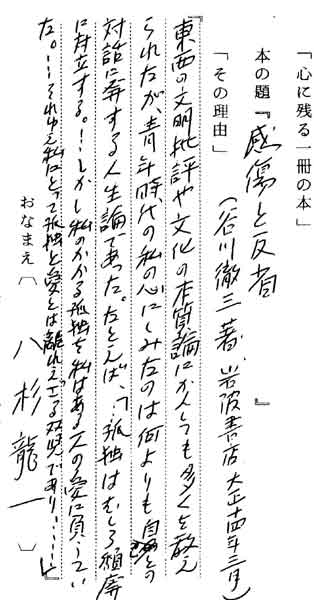 「心に残る一冊の本」
本の題『感傷と反省』
（谷川徹三著、岩波書店 大正十四年三月）
「その理由」
東西の文明批評や文化の本質論にかんしても多くを教え
られたが、青年時代の私の心にしみたのは何よりも自己との
対話に寄する人生論であった。たとえば、「…孤独はむしろ頽廃
に対立する。…しかし私のかかる孤独を私はある人の愛に負うてい
た。…それゆえ私にとって孤独と愛とは離れざる双児であり……」
おなまえ〔 八杉龍一 〕